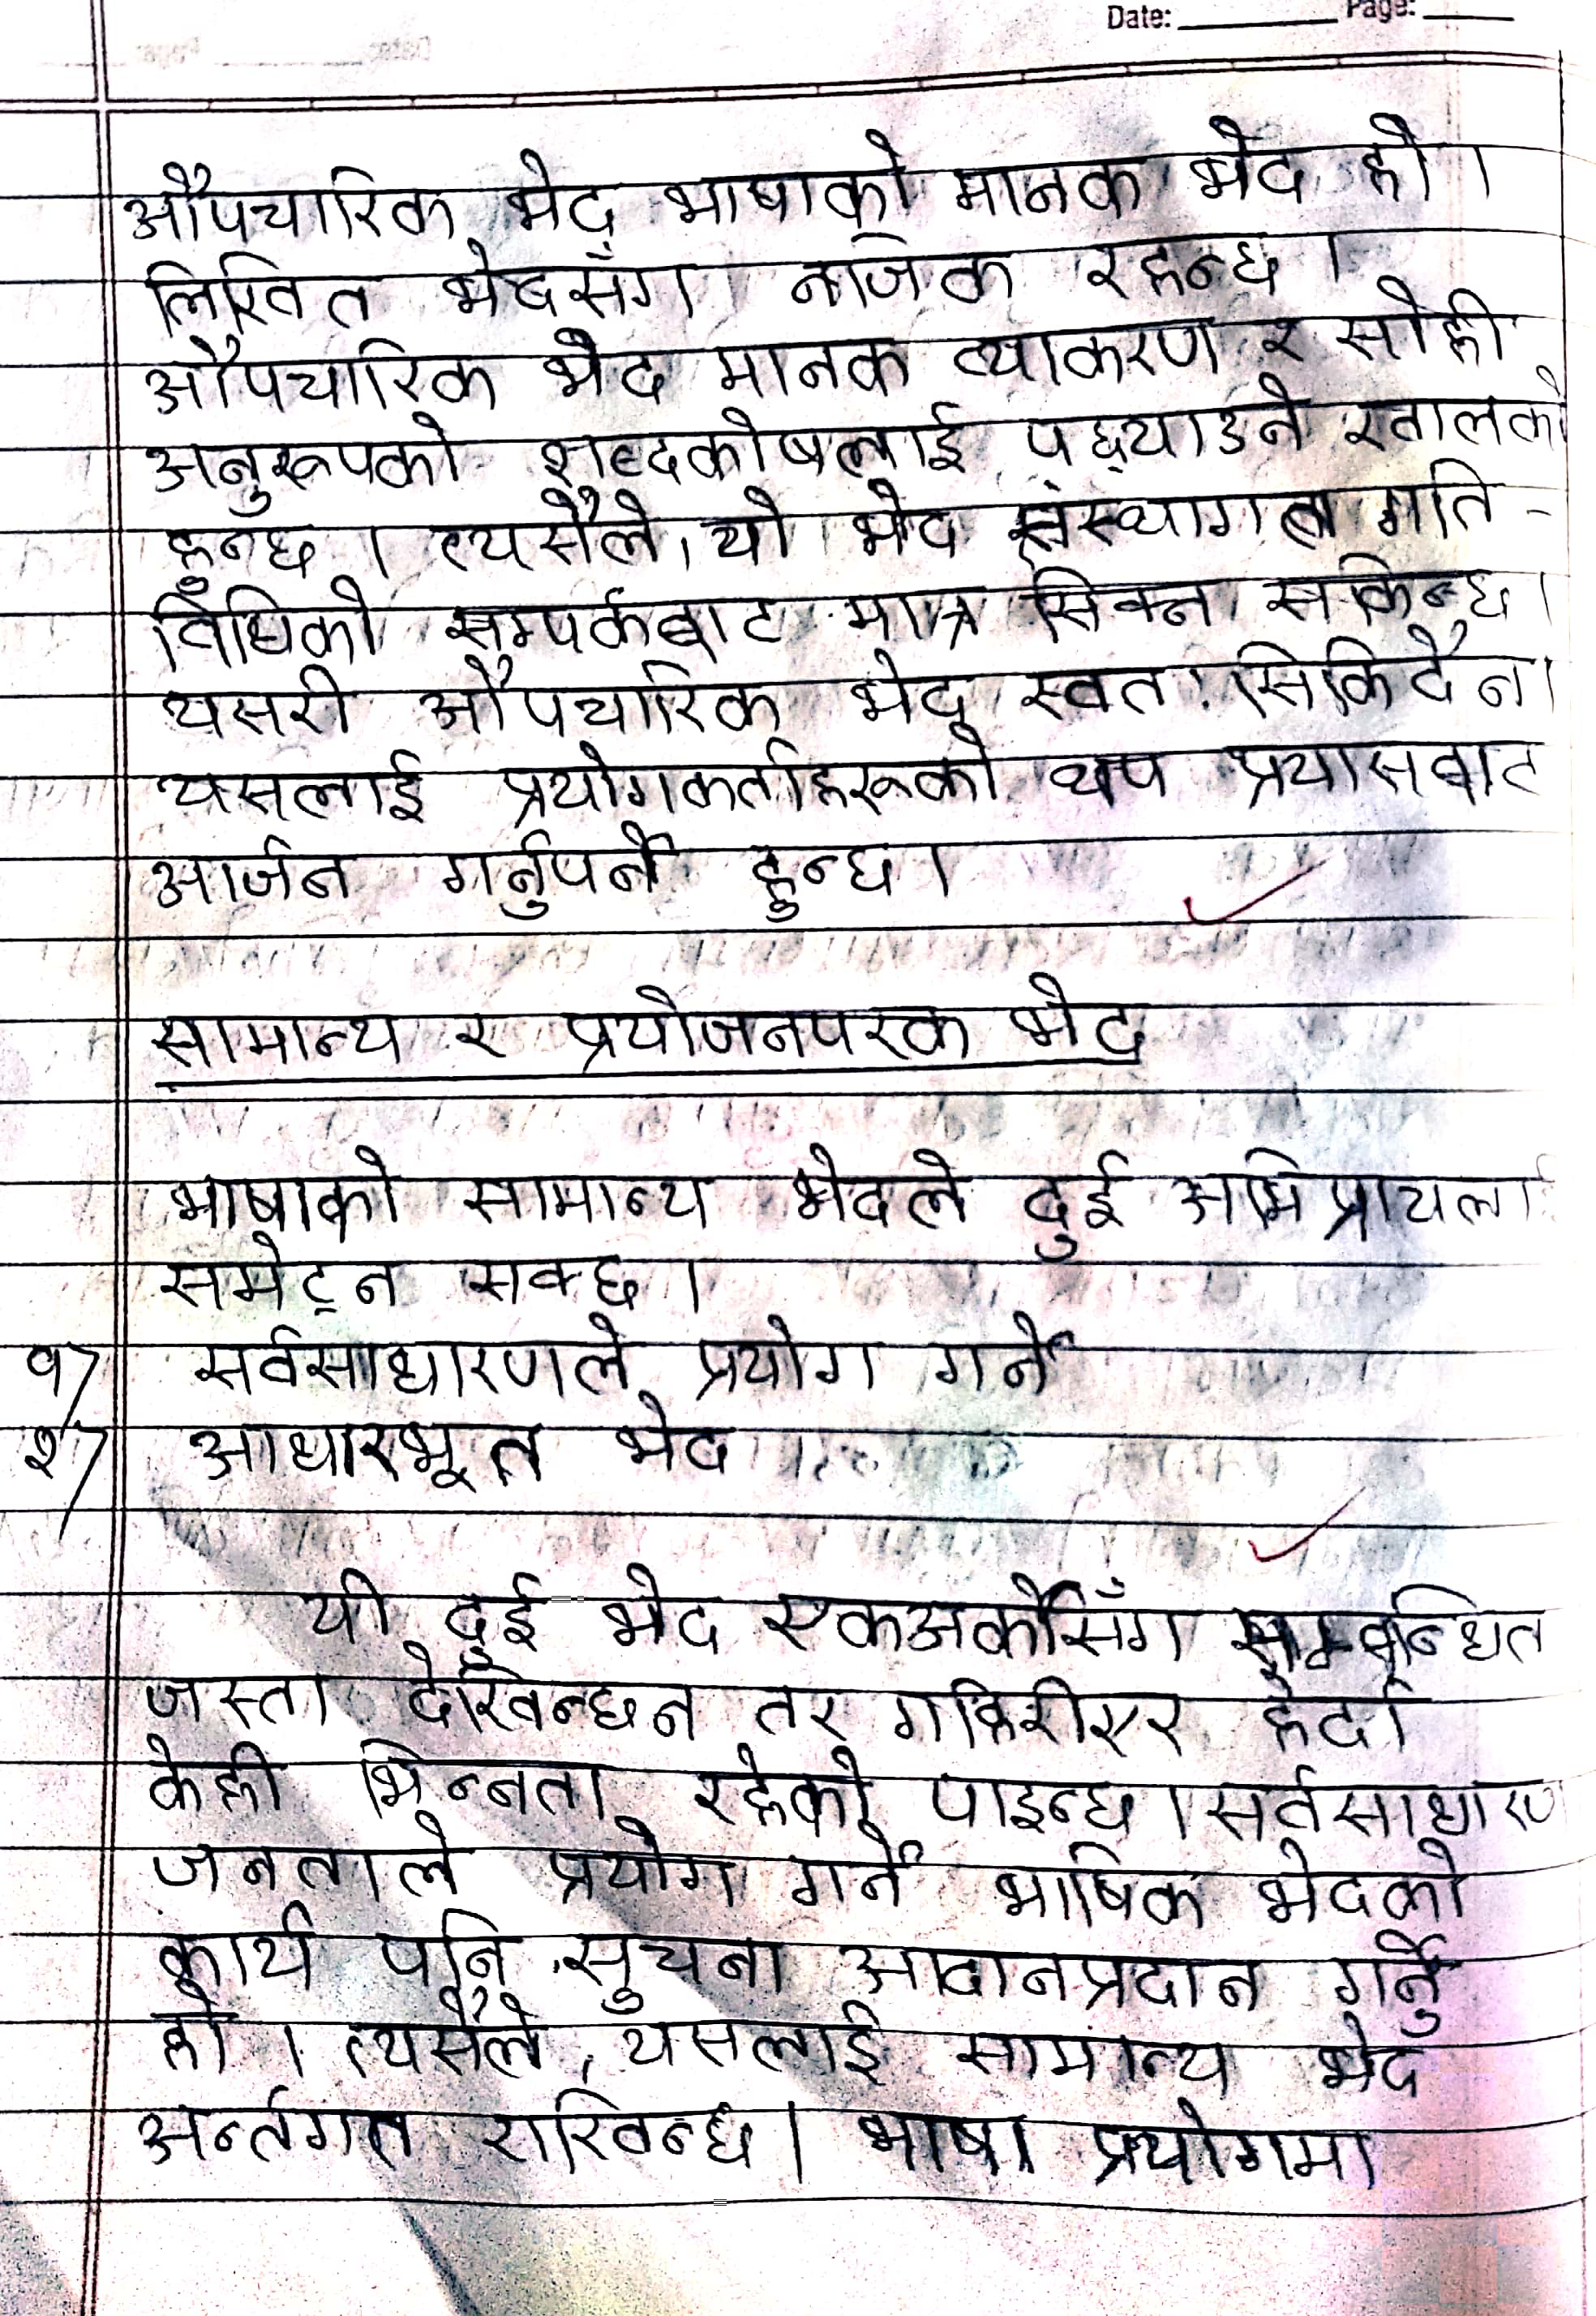 Date: Page:
औपचारिक भेद भाषाको मानक भेद हो ।
लिखित भेदसँग नजिक रहन्छ ।
औपचारिक भेद मानक व्याकरण र सोही
अनुरूपको शब्दकोषलाई पछ्याउने खालको
हुन्छ । त्यसैले, यो भेद संस्थागत गति-
विधिको सम्पर्कबाट मात्र सिक्न सकिन्छ ।
यसरी औपचारिक भेद स्वत: सिकिदैन ।
यसलाई प्रयोगकर्ताहरूको थप प्रयासबाट
आर्जन गर्नुपर्ने हुन्छ ।
सामान्य र प्रयोजनपरक भेद
भाषाको सामान्य भेदले दुई अभिप्रायला
समेट्न सक्छ ।
१) सर्वसाधारणले प्रयोग गर्ने
२) आधारभूत भेद
यी दुई भेद एकअर्कोसँग सम्बन्धित
जस्ता देखिन्छन तर गहिरीएर हेर्दा
केही भिन्नता रहेको पाइन्छ । सर्तसाधारण
जनताले प्रयोग गर्ने भाषिक भेदको
कार्य पनि सुचना आदानप्रदान गर्नु
हो । त्यसैले, यसलाई सामान्य भेद
अर्न्तगत राखिन्छ । भाषा प्रयोगमा